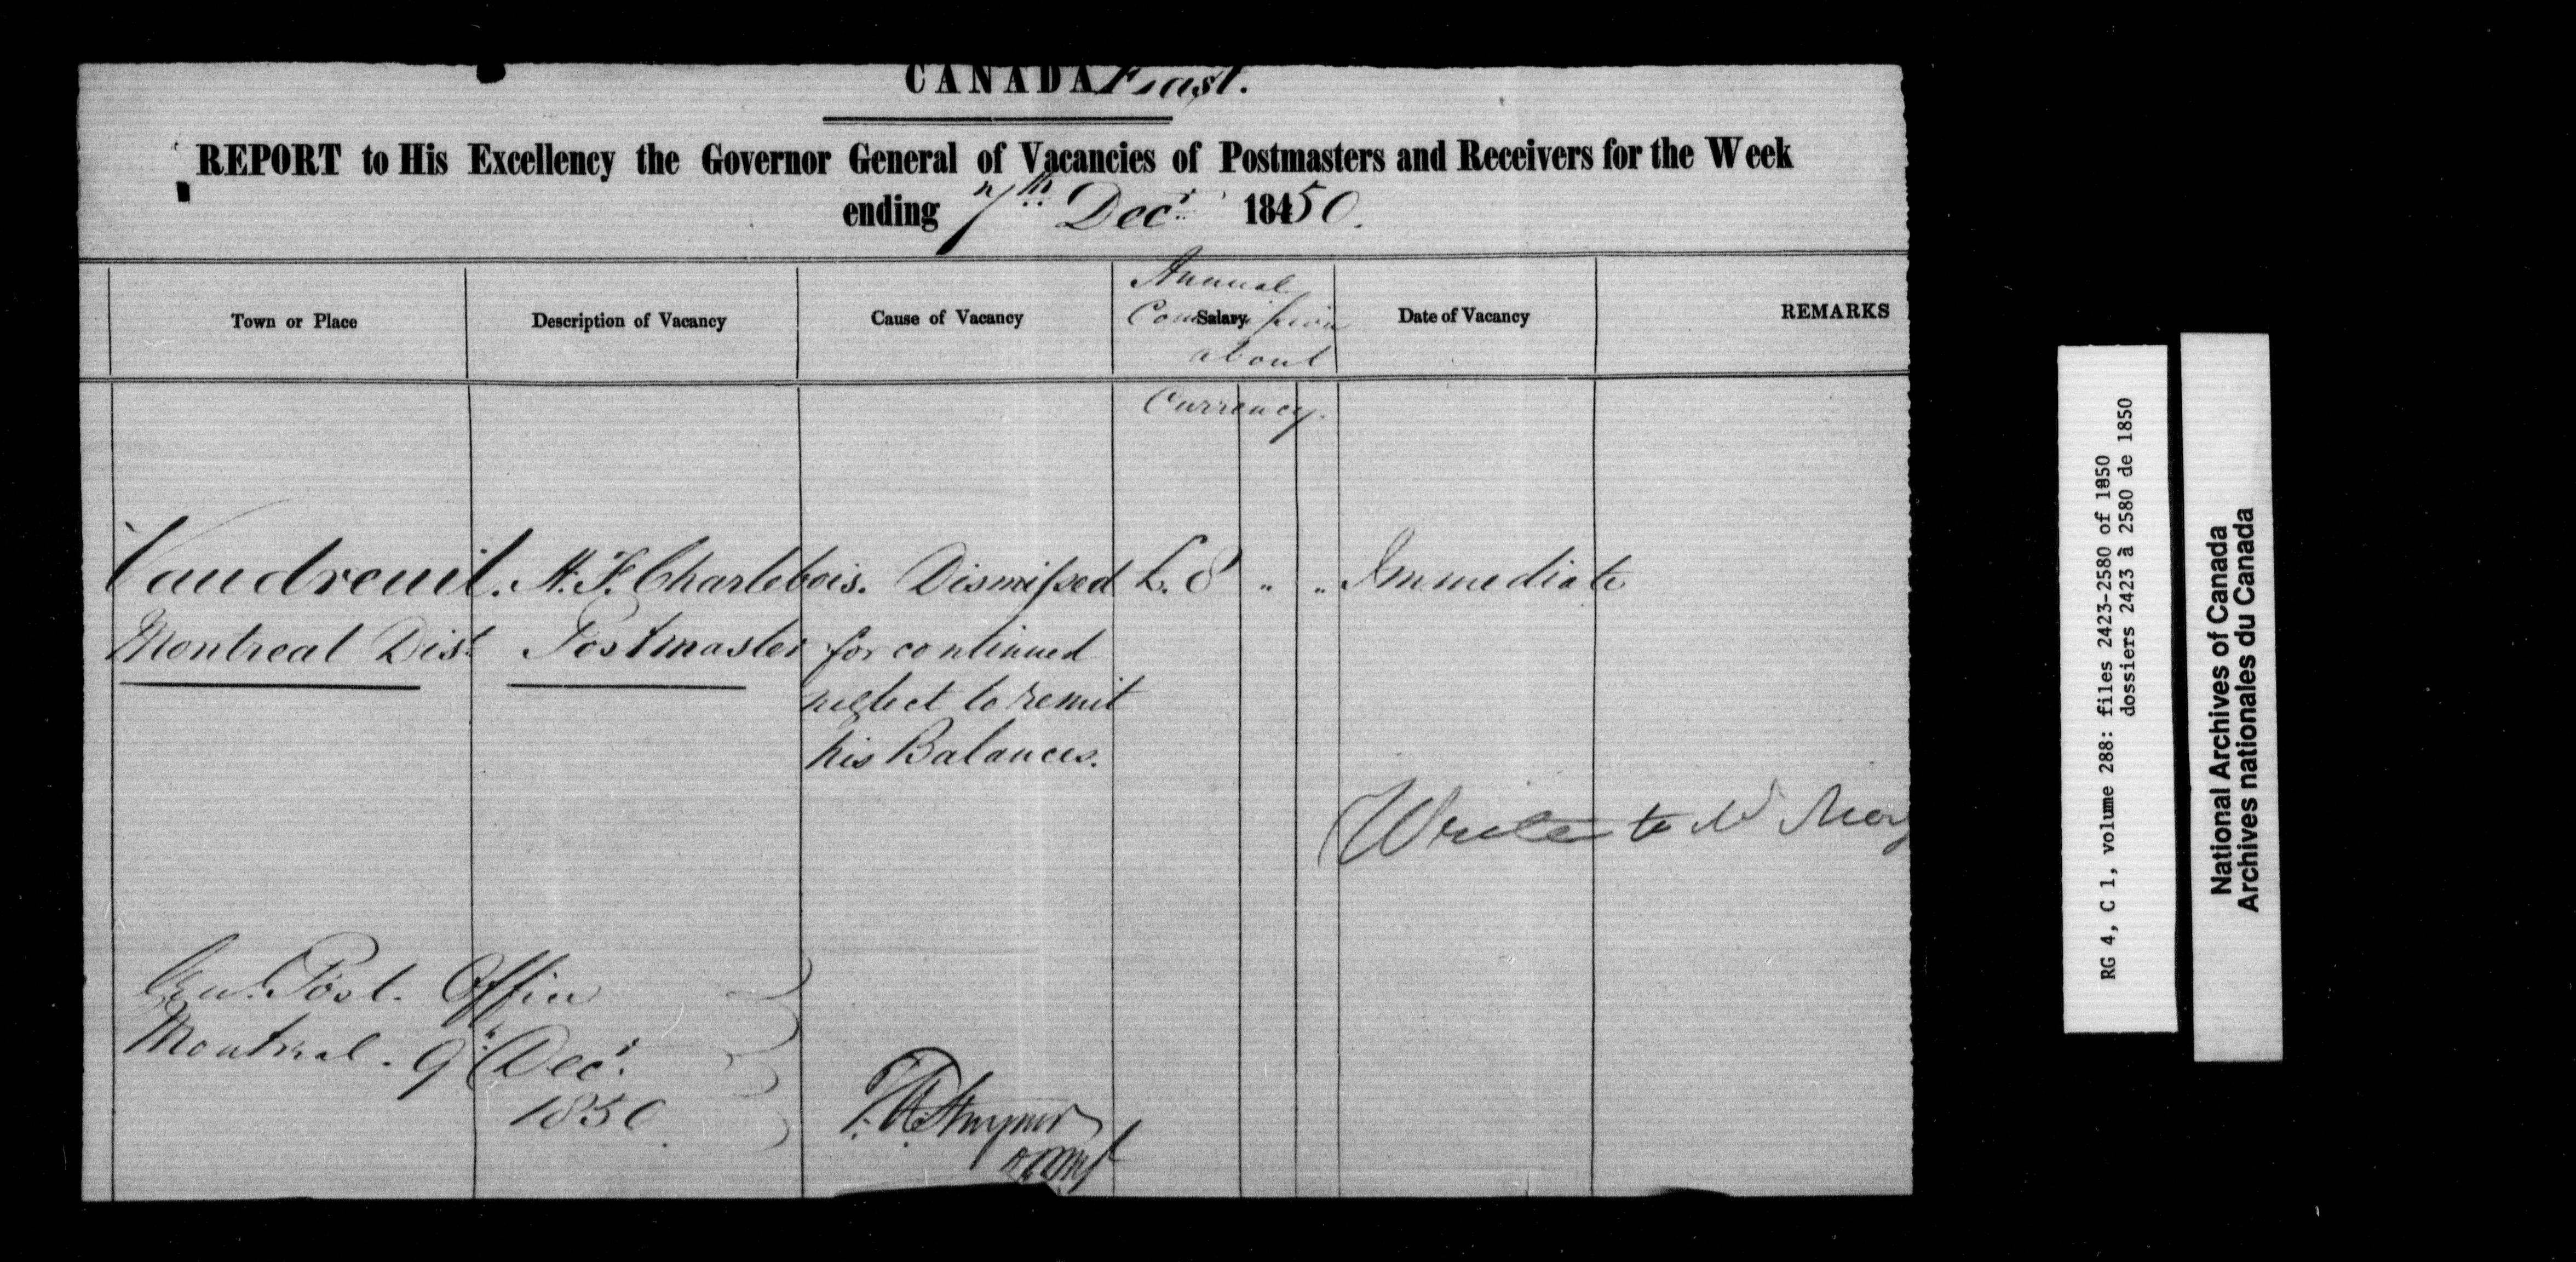 CANADA East.
REPORT to His Excellency the Governor General of Vacancies of Postmasters and Receivers for the Week
ending 7th Decr 18450.
Town or Place
Description of Vacancy
Cause of Vacancy
Annual
Commission
Salary
about
Currency.
Date of Vacancy
REMARKS
Vaudreuil. H. F. Charlebois. Dismissed £. 8 " " Immediate
Montreal Dist Postmaster for continued
neglect to remit
his Balances.
Write to Mr
Genl. Post. Office
Montreal. 9th Decr.
1850.
T. A. Stayner
DPMG
RG 4, C 1, volume 288: files 2423-2580 of 1850
dossiers 2423 à 2580 de 1850
National Archives of Canada
Archives nationales du Canada